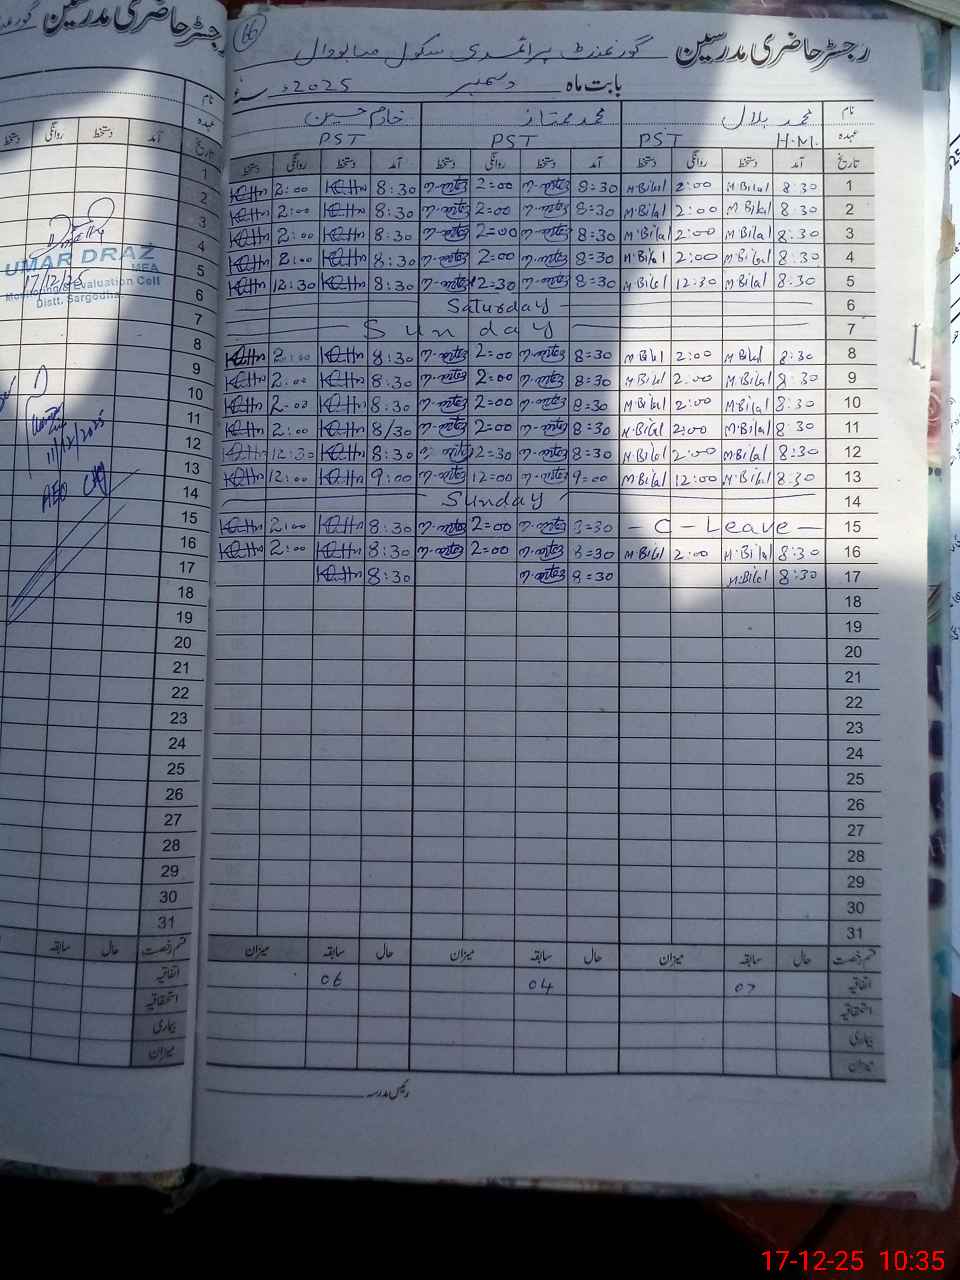 رجسٹر حاضری مدرسین گورنمنٹ پرائمری سکول صابووال
66
بابت ماہ دسمبر 2025ء
نام محمد بلال محمد ممتاز خادم حسین
عہدہ H.M. PST PST PST
تاریخ آمد دستخط روانگی دستخط آمد دستخط روانگی دستخط آمد دستخط روانگی دستخط
1 8:30 M.Bilal 2:00 M.Bilal 8=30 2=00 8:30 2:00
2 8:30 M.Bilal 2:00 M.Bilal 8=30 2=00 8:30 2:00
3 8:30 M.Bilal 2:00 M.Bilal 8=30 2=00 8:30 2:00
4 8:30 M.Bilal 2:00 M.Bilal 8=30 2=00 8:30 2:00
5 8:30 M.Bilal 12:30 M.Bilal 8=30 12=30 8:30 12:30
6 Saturday
7 Sunday
8 8:30 M.Bilal 2:00 M.Bilal 8=30 2=00 8:30 2:00
9 8:30 M.Bilal 2:00 M.Bilal 8=30 2=00 8:30 2:00
10 8:30 M.Bilal 2:00 M.Bilal 8=30 2=00 8:30 2:00
11 8:30 M.Bilal 2:00 M.Bilal 8=30 2=00 8/30 2:00
12 8:30 M.Bilal 2:00 M.Bilal 8=30 12=30 8:30 12:30
13 8:30 M.Bilal 12:00 M.Bilal 9=00 12=00 9:00 12:00
14 Sunday
15 - C - Leave - 8=30 2=00 8:30 2:00
16 8:30 M.Bilal 2:00 M.Bilal 8=30 2=00 8:30 2:00
17 8:30 M.Bilal 8=30 8:30
18
19
20
21
22
23
24
25
26
27
28
29
30
31
قسم رخصت حال سابقہ میزان حال سابقہ میزان حال سابقہ میزان
اتفاقیہ 07 04 06
استحقاقیہ
بیماری
میزان
رئیس مدرسہ
رجسٹر حاضری مدرسین
نام
عہدہ
تاریخ آمد دستخط روانگی دستخط
1
2
3
4
5
6
7
8
9
10
11
12
13
14
15
16
17
18
19
20
21
22
23
24
25
26
27
28
29
30
31
UMAR DRAZ
MEA
17/12/25
Monitoring & Evaluation Cell
Distt. Sargodha
11/12/2025
AEO
قسم رخصت حال سابقہ
اتفاقیہ
استحقاقیہ
بیماری
میزان
17-12-25 10:35